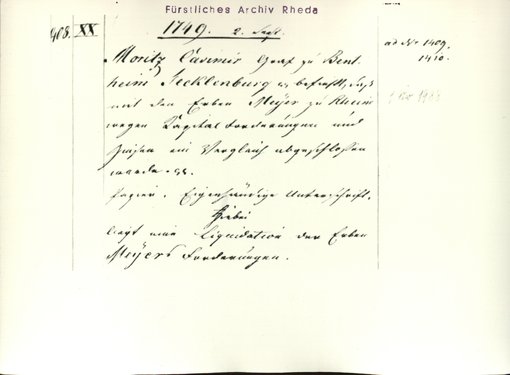 Fürstliches Archiv Rheda
908. XX 1749. 2. Sept. ad No 1409.
1410.
Moritz Casimir Graf zu Bent
heim Tecklenburg befiehlt, daß
mit den Erben Meyer zu Rheine
wegen Capital Forderungen und
Zinsen ein Vergleich abgeschlossen
werde.
Papier. Eigenhändige Unterschrift.
Hiebei
liegt eine Liquidation der Erben
Meyers Forderungen.